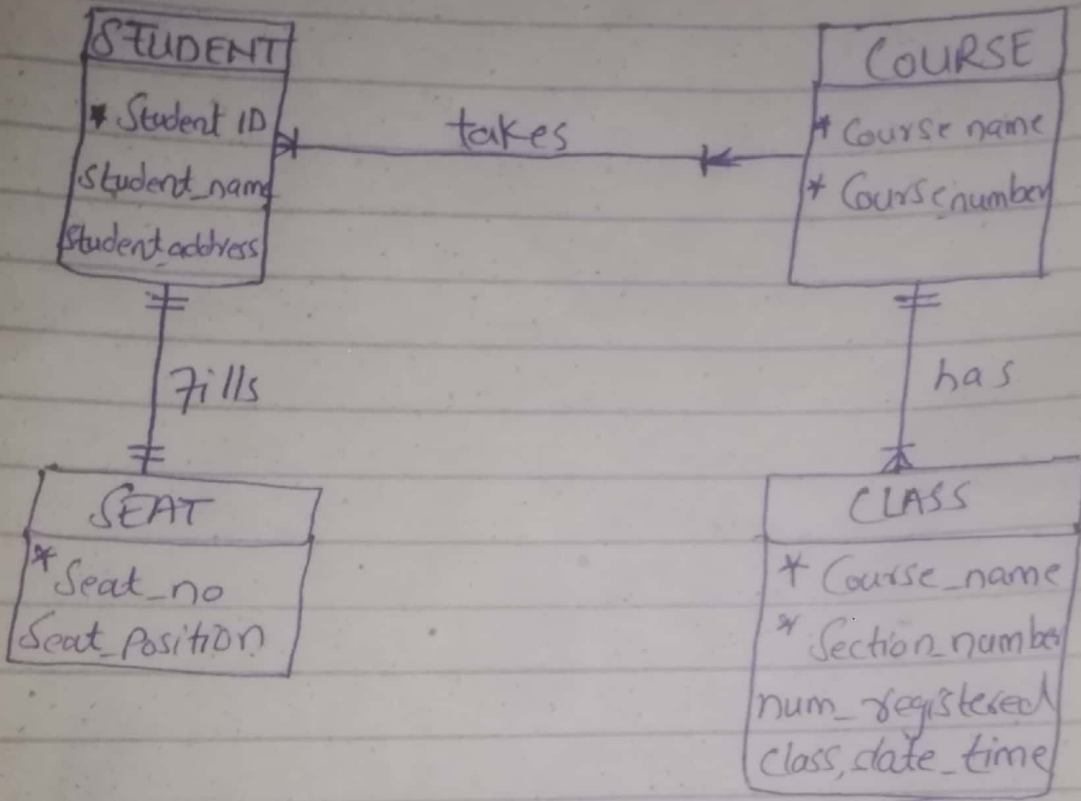 STUDENT
* Student ID
Student_name
Student address
takes
COURSE
* Course name
* Course number
fills
has
SEAT
* Seat_no
Seat_position
CLASS
* Course_name
* Section_number
num_registered
class, date_time